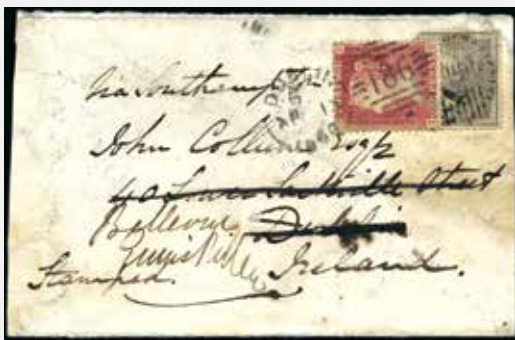 via Southampton
John Collins Esqr
40 Lower Sackville Street
Bellevue Dublin
Enniskillen
Ireland.
Stamped
186